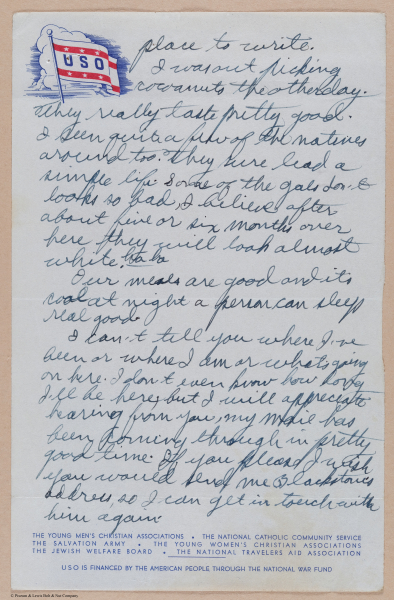 USO
place to write.
I was out picking
cocoanuts the other day.
They really taste pretty good.
I seen quite a few of the natives
around too. They sure lead a
simple life. Some of the gals don't
look so bad, I believe after
about five or six months over
here they will look almost
white. ha ha
Our meals are good and its
cool at night a person can sleep
real good.
I can't tell you where I've
been or where I am or whats going
on here. I don't even know how long
I'll be here, but I will appreciate
hearing from you, my mail has
been coming through in pretty
good time. If you please I wish
you would send me Blackstone's
address so I can get in touch with
him again.
THE YOUNG MEN'S CHRISTIAN ASSOCIATIONS • THE NATIONAL CATHOLIC COMMUNITY SERVICE
THE SALVATION ARMY • THE YOUNG WOMEN'S CHRISTIAN ASSOCIATIONS
THE JEWISH WELFARE BOARD • THE NATIONAL TRAVELERS AID ASSOCIATION
USO IS FINANCED BY THE AMERICAN PEOPLE THROUGH THE NATIONAL WAR FUND